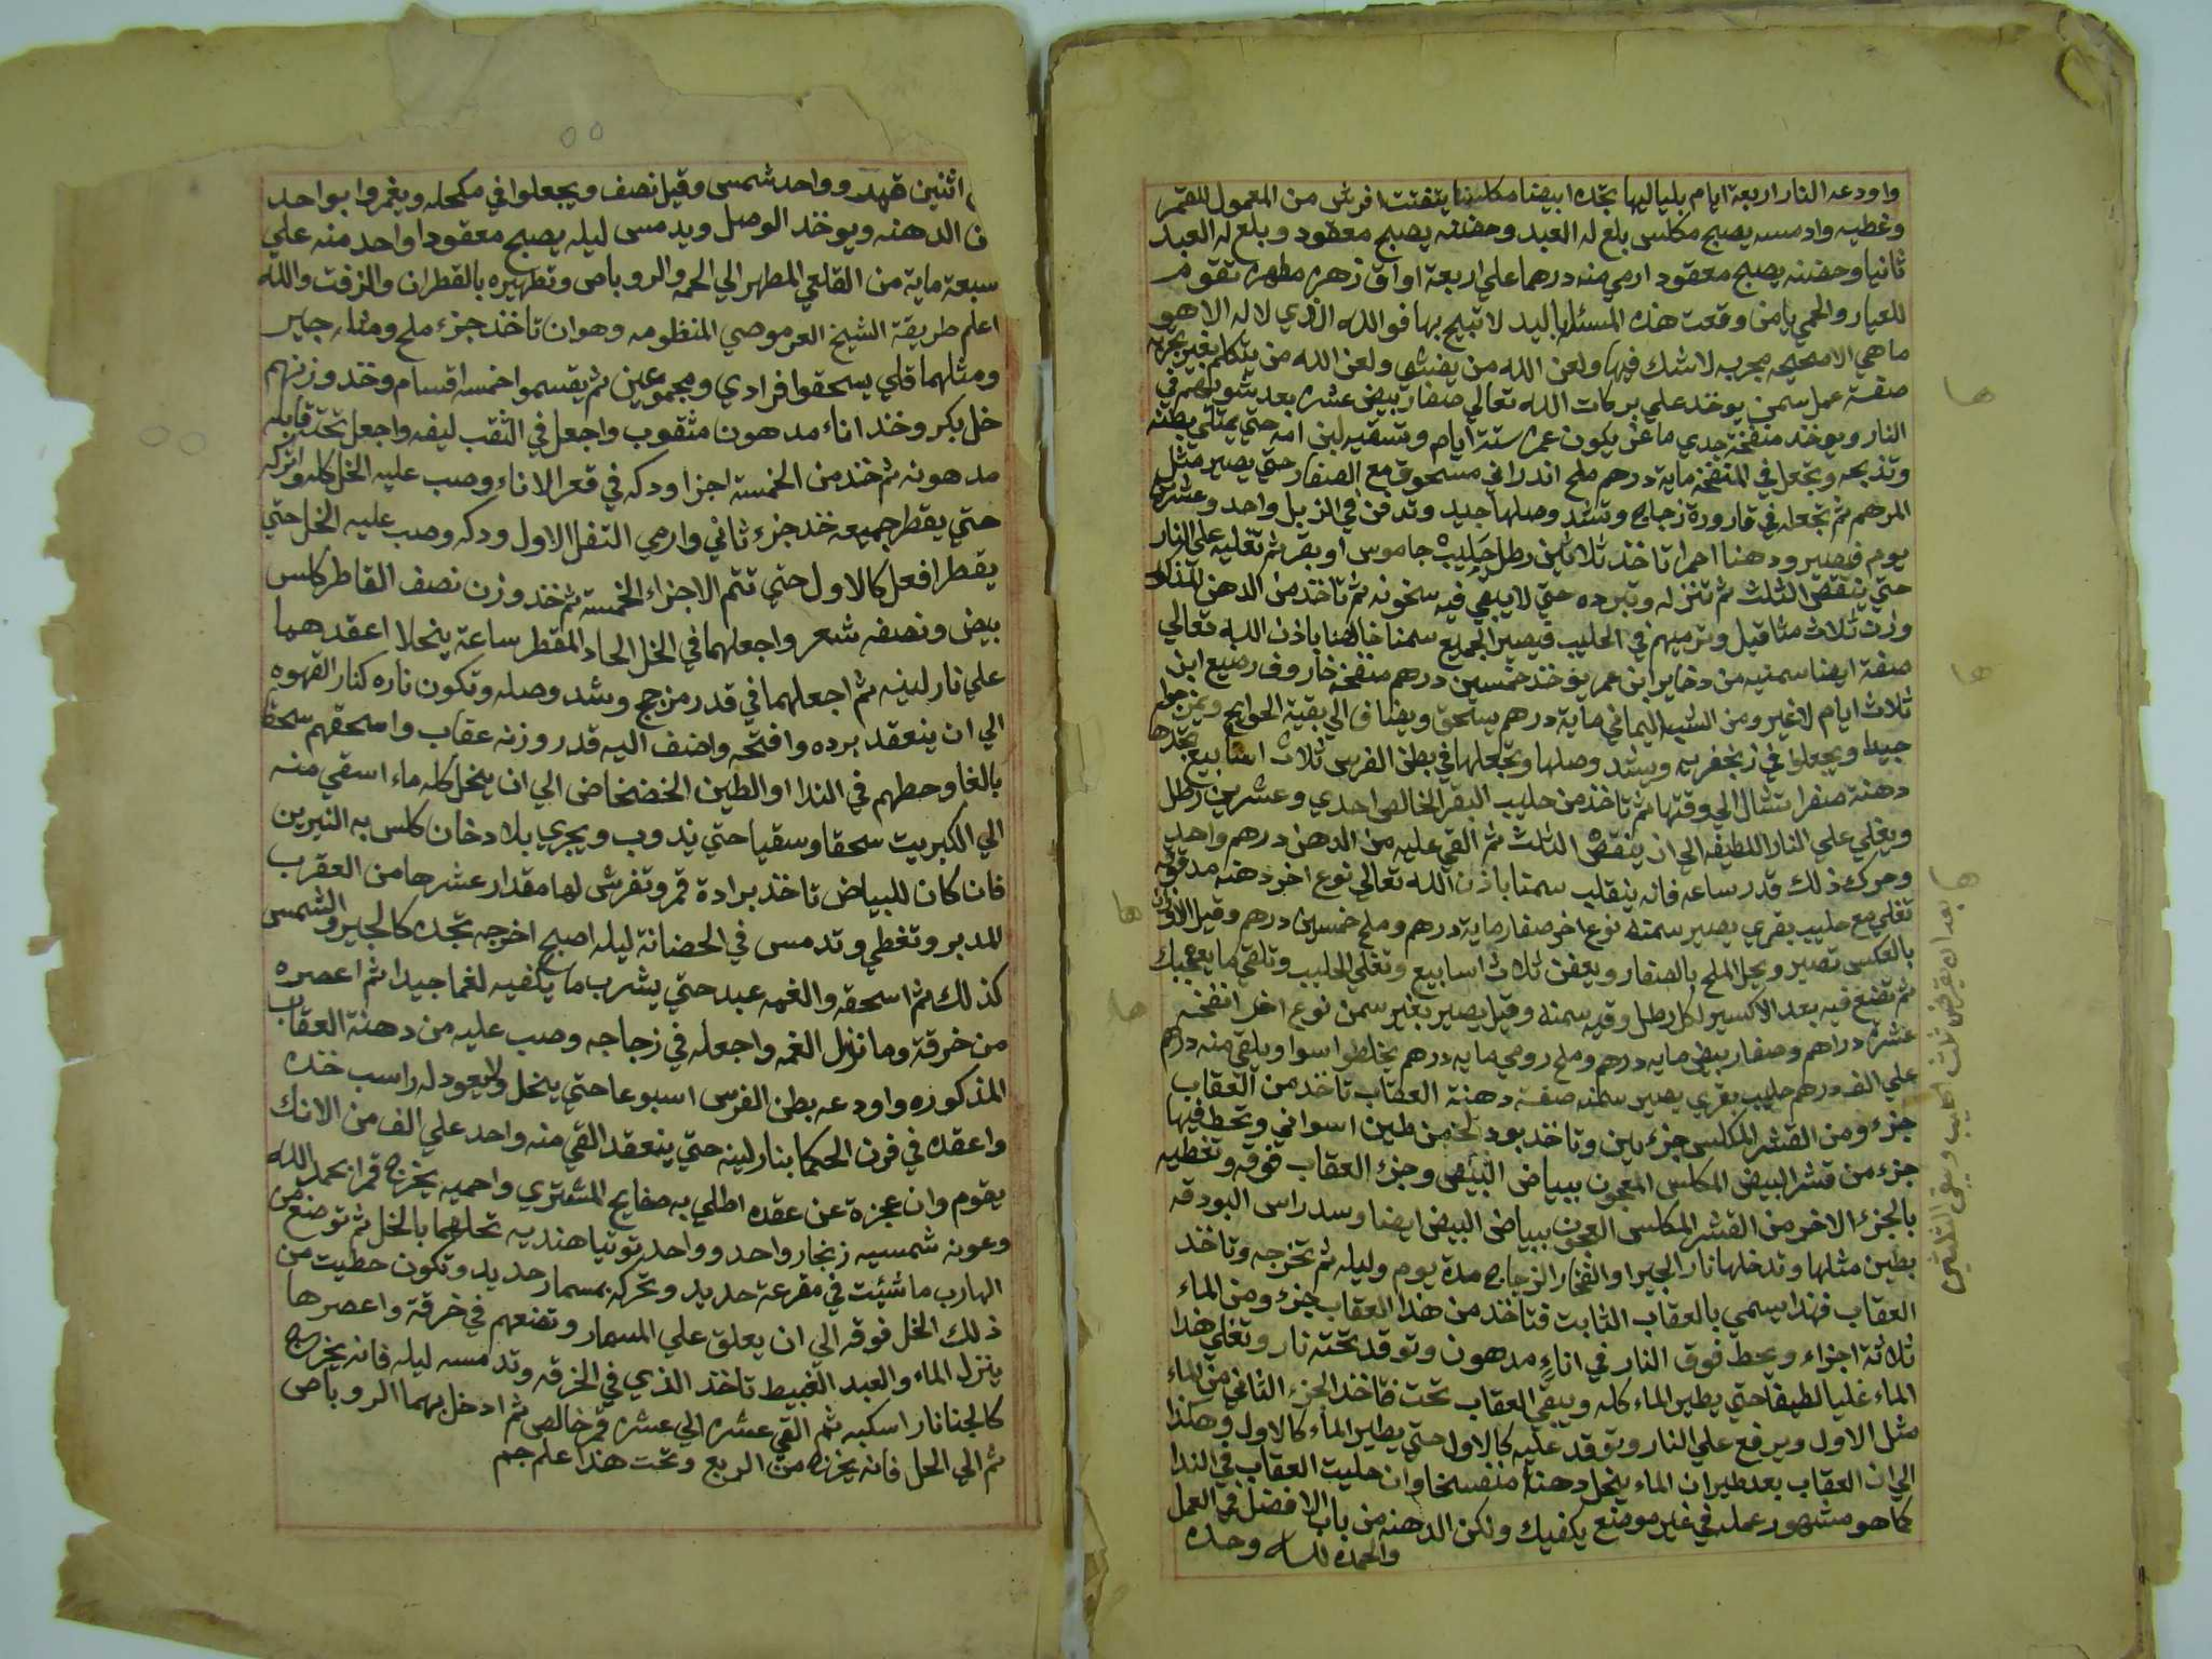 واودعه النار اربعة ايام بلياليها تجده ابيضا مكلسا يتفتت افرش من المعمول للقمر
وغطيه وادمسه يصبح مكلس بلغ له العبد وحضنه يصبح معقود وبلغ له العبد
ثانيا وحضنه يصبح معقود ارمي منه درهما علي اربعة اواق زهره مطهره تقوم
للعيار والحمي يامن وقعت هذه المسئله باليد لا تبيح بها فوالله الذي لا اله الا هو
ما هي الا صحيحه مجربه لا شك فيها ولعن الله من يفشي ولعن الله من يتكلم بغير تجربه
صفة عمل سمن يوخذ علي بركات الله تعالي صفار بيض عشره بعد شويهم في
النار ويوخذ منفخة جدي ماعز يكون عمره ستة ايام وتسقيه لبن امه حتي يمتلي بطنه
وتذبحه وتجعل في المنفخه ماية درهم ملح اندراني مسحوق مع الصفار حتي يصير مثل
المرهم ثم تجعله في قارورة زجاج وتشد وصلها جيد وتدفن في الزبل واحد وعشرين
يوم فيصير ودهنا احمرا تاخذ ثلاثين رطل حليب جاموس او بقر ثم تغليه علي النار
حتي ينقص الثلث ثم تنزله وتبرده حتي لا يبقي فيه سخونه ثم تاخذ من الدهن المذكور
وزن ثلاث مثاقيل وترميهم في الحليب فيصير الجميع سمنا خالصا باذن الله تعالي
صفة ايضا سمنيه من دخاير ابن عمر يوخذ خمسين درهم منفخة خاروف رضيع ابن
ثلاث ايام لا غير ومن الشب اليماني ماية درهم يسحق ويضاف الي بقية الحوايج ويمزجوا
جيدا ويجعلوا في زنجفريه ويشد وصلها وتجعلها في بطن الفرس ثلاث اسابيع تجدها
دهنة صفرا تشال الي وقتها ثم تاخذ من حليب البقر الخالص احدي وعشرين رطل
ويغلي علي النار اللطيفه الي ان ينقص الثلث ثم القي عليه من الدهن درهم واحد
وحرك ذلك قدر ساعه فانه ينقلب سمنا باذن الله تعالي نوع اخر دهنه مدقوقه
تغلي مع حليب بقري يصير سمنه نوع اخر صفار ماية درهم وملح خمسين درهم وقيل الاوزان
بالعكس تصير ويحل الملح بالصفار ويعفن ثلاث اسابيع وتغلي الحليب وتلقي ما يعجبك
ثم تضع فيه بعد الاكسير لكل رطل وقيه سمنه وقيل يصير بغير سمن نوع اخر انفخه
عشرة دراهم وصفار بيض مايه درهم وملح رومي مايه درهم يخلطوا سوا ويلقي منه درهم
علي الف درهم حليب بقري يصير سمنه صفة دهنة العقاب تاخذ من العقاب
جزء ومن القشر المكلس جزءين وتاخذ بودقة من طين اسواني وتحط فيها
جزء من قشر البيض المكلس المعجون ببياض البيض وجزء العقاب فوقه وتغطيه
بالجزء الاخر من القشر المكلس العجون ببياض البيض ايضا وسد راس البودقه
بطين مثلها وتدخلها نار الجير او الفخار الزجاج مدة يوم وليله ثم تخرجه وتاخذ
العقاب فهذا يسمي بالعقاب الثابت فتاخذ من هذا العقاب جزء ومن الماء
ثلاثة اجزاء ويحط فوق النار في اناء مدهون وتوقد تحته نار وتغلي هذا
الماء غليا لطيفا حتي يطير الماء كله ويبقي العقاب تحت فتاخذ الجزء الثاني من الماء
مثل الاول ويرفع علي النار وتوقد عليه كالاول حتي يطير الماء كالاول وهكذا
الي ان العقاب بعد طيران الماء ينحل دهنة منفسخا وان حليت العقاب في الندا
كما هو مشهور عمله في غير موضع يكفيك ولكن الدهنه من باب الافضل في العمل
والحمد لله وحده
ها
ها
ها
ها
ها بعد ان يقرض ثلث الحليب ويبقي الثلثين
اثنين قهد وواحد شمس وقيل نصف ويجعلوا في مكحله ويغمروا بواحد
الدهنه ويوخذ الوصل ويدمس ليله يصبح معقودا واحد منه علي
سبعة ماية من القلعي المطهر الي الحمه والروباص وتطهيره بالقطران والزفت والله
اعلم طريقة الشيخ العرموصي المنظومه وهو ان تاخذ جزء ملح ومثله جاير
ومثلهما قلي يسحقوا فرادي ومجموعين ثم يقسموا خمسه اقسام وخذ وزنهم
خل بكر وخذ اناء مدهون مثقوب واجعل في الثقب ليفه واجعل تحته قابله
مدهونه ثم خذ من الخمسة اجزا ودكه في قعر الاناء وصب عليه الخل كله واتركه
حتي يقطر جميعه خذ جزء ثاني وارمي التفل الاول ودكه وصب عليه الخل حتي
يقطر افعل كالاول حتي تتم الاجزاء الخمسة ثم خذ وزن نصف القاطر كلس
بيض ونصفه شعر واجعلهما في الخل الحاد المقطر ساعة ينحلا اعقدهما
علي نار لينه ثم اجعلهما في قدر مزجج وشد وصله وتكون ناره كنار القهوه
الي ان ينعقد برده وافتحه واضف اليه قدر وزنه عقاب واسحقهم سحقا
بالغا وحطهم في الندا او الطين الخضخاض الي ان ينحل كله ماء اسقي منه
الي الكبريت سحقا وسقيا حتي يذوب ويجري بلا دخان كلس به النيرين
فان كان للبياض تاخذ برادة قمر وتفرش لها مقدار عشرها من العقرب
المدبر وتغطي وتدمس في الحضانة ليله اصبح اخرجه تجده كالجير والشمس
كذلك ثم اسحقه والغمه عبد حتي يشرب ما يكفيه لغما جيدا ثم اعصره
من خرقة وما نزل الغمه واجعله في زجاجه وصب عليه من دهنة العقاب
المذكوره واودعه بطن الفرس اسبوعا حتي ينحل ولا يعود له راسب خذه
واعقده في فرن الحكما بنار لينه حتي ينعقد القي منه واحد علي الف من الانك
يقوم وان عجزة عن عقده اطلي به صفايح المشتري واحميه يخرج قمرا بحمد الله
وعونه شمسيه زنجار واحد وواحد توتيا هنديه تحلهما بالخل ثم توضع من
الهارب ما شئت في مقرعة حديد وتحركه بمسمار حديد وتكون حطيت من
ذلك الخل فوقه الي ان يعلق علي المسمار وتضعهم في خرقة واعصرها
ينزل الماء والعبد الغبيط تاخذ الذي في الخرقه وتدمسه ليله فانه يخرج
كالجنانار اسكبه ثم القي عشره الي عشره قمر خالص ثم ادخل بهما الروباص
ثم الي الحل فانه يخرج من الربع وتحت هذا علم جم